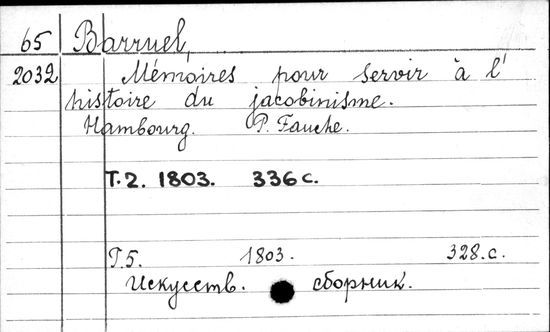 65 Barruel,
2032 Mémoires pour servir à l'
histoire du jacobinisme.
Hambourg. P. Fauche.
Т.2. 1803. 336 с.
Т.5. 1803. 328.с.
Искусств. сборник.